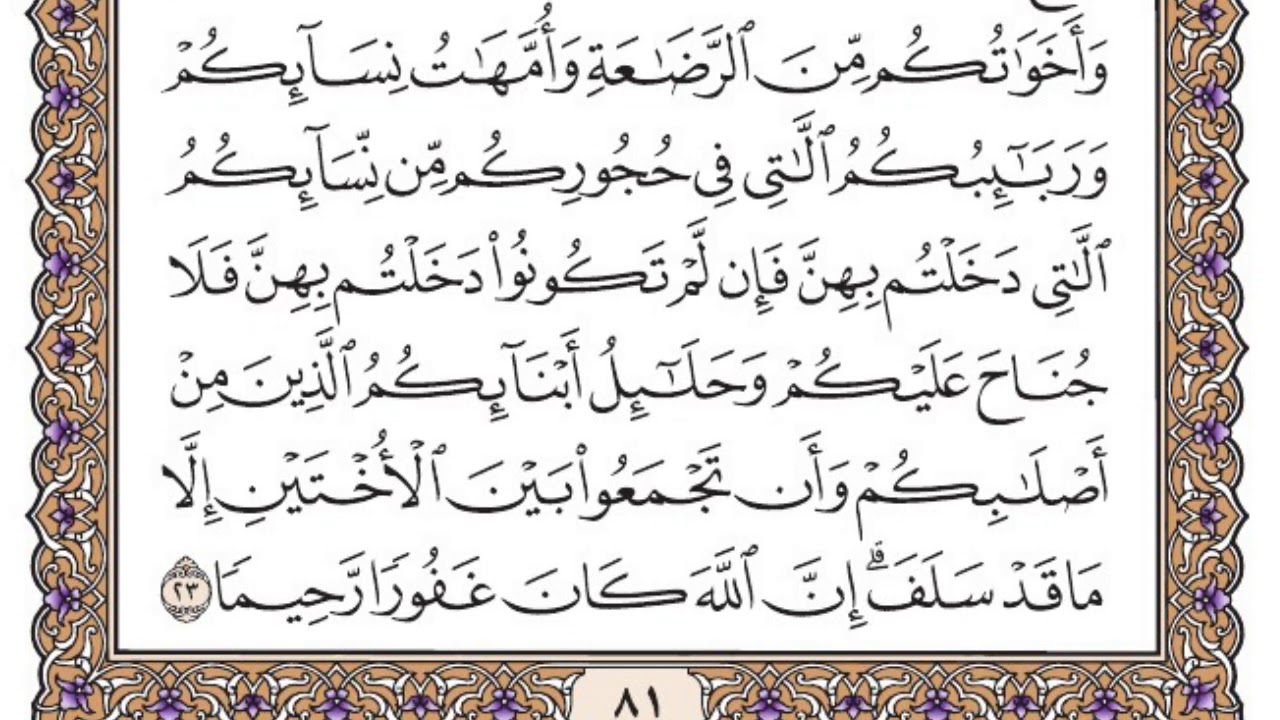 وَأَخَوَٰتُكُم مِّنَ ٱلرَّضَـٰعَةِ وَأُمَّهَـٰتُ نِسَآئِكُمْ
وَرَبَـٰٓئِبُكُمُ ٱلَّـٰتِى فِى حُجُورِكُم مِّن نِّسَآئِكُمُ
ٱلَّـٰتِى دَخَلْتُم بِهِنَّ فَإِن لَّمْ تَكُونُوا۟ دَخَلْتُم بِهِنَّ فَلَا
جُنَاحَ عَلَيْكُمْ وَحَلَـٰٓئِلُ أَبْنَآئِكُمُ ٱلَّذِينَ مِنْ
أَصْلَـٰبِكُمْ وَأَن تَجْمَعُوا۟ بَيْنَ ٱلْأُخْتَيْنِ إِلَّا
مَا قَدْ سَلَفَ ۗ إِنَّ ٱللَّهَ كَانَ غَفُورًا رَّحِيمًا ٢٣
٨١